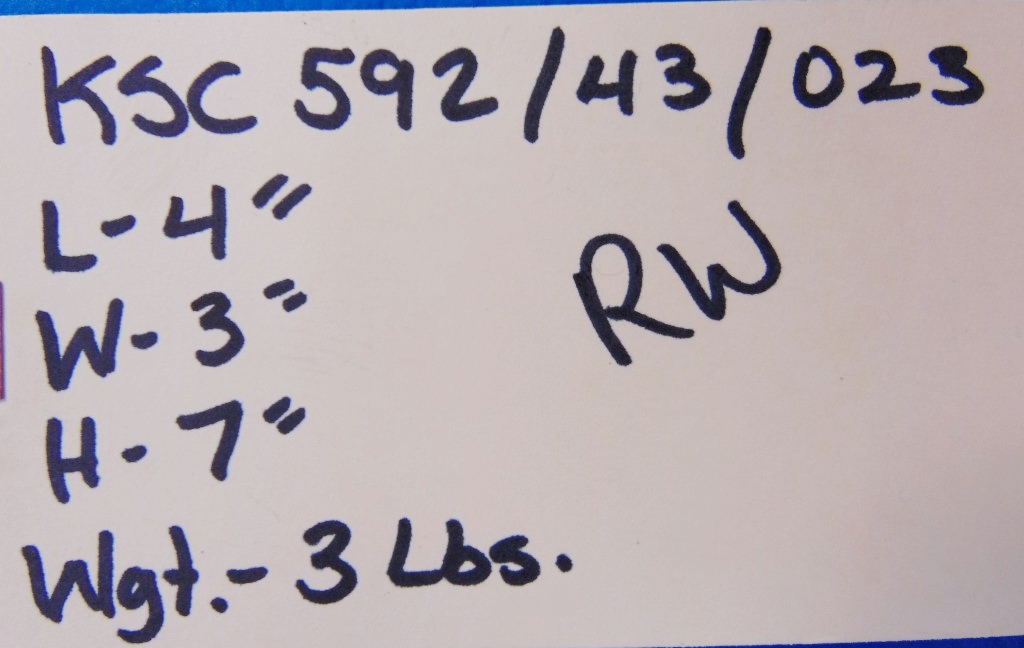 KSC 592/43/023
L- 4"
RW
W- 3"
H- 7"
Wgt.- 3 Lbs.